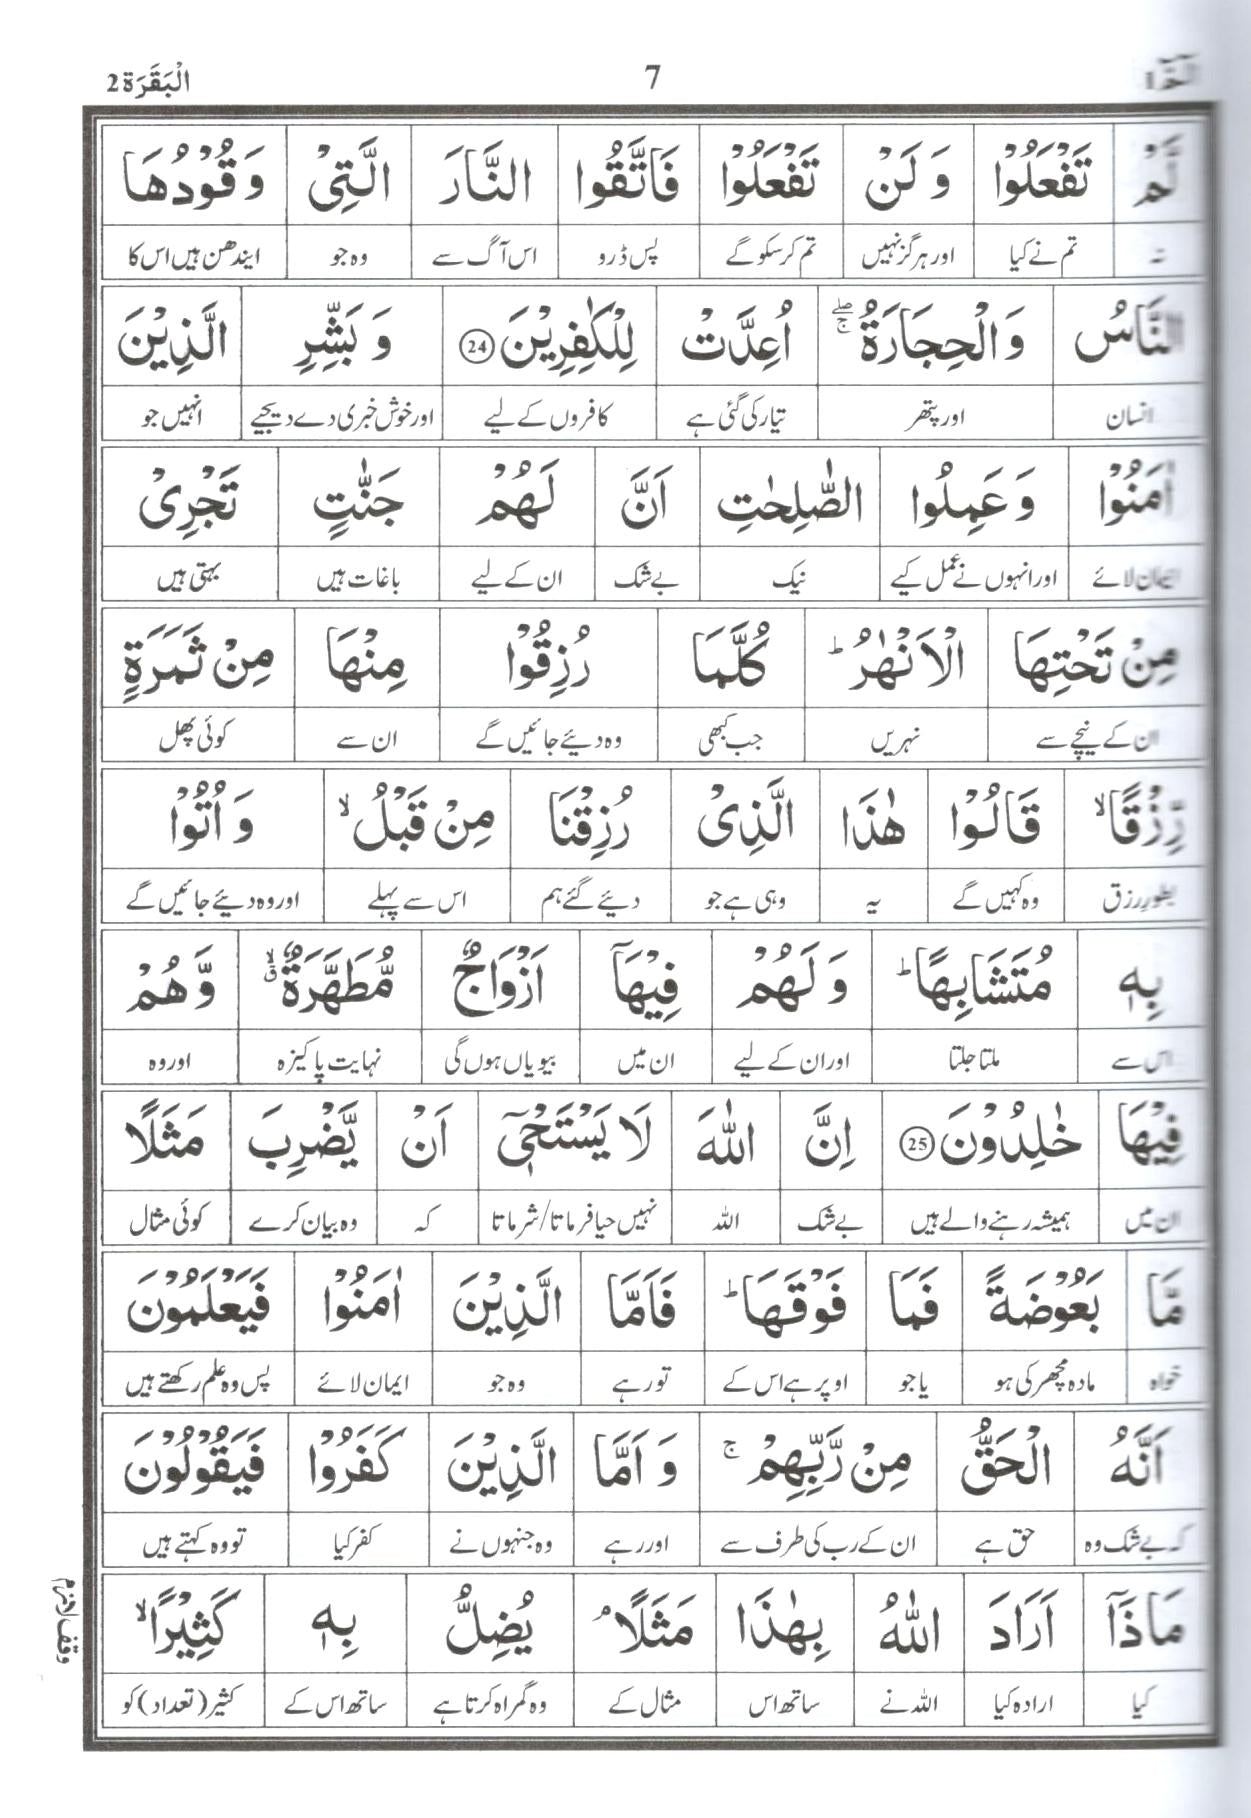 الٓمّٓ ١ 7 اَلْبَقَرَة 2
لَّمْ تَفْعَلُوْا وَ لَنْ تَفْعَلُوْا فَاتَّقُوا النَّارَ الَّتِیْ وَ قُوْدُهَا
نہ تم نے کیا اور ہرگز نہیں تم کر سکو گے پس ڈرو اس آگ سے وہ جو ایندھن ہیں اس کا
النَّاسُ وَ الْحِجَارَةُ ۖۚ اُعِدَّتْ لِلْكٰفِرِیْنَ 24 وَ بَشِّرِ الَّذِیْنَ
انسان اور پتھر تیار کی گئی ہے کافروں کے لیے اور خوش خبری دے دیجیے انہیں جو
اٰمَنُوْا وَ عَمِلُوا الصّٰلِحٰتِ اَنَّ لَهُمْ جَنّٰتٍ تَجْرِیْ
ایمان لائے اور انہوں نے عمل کیے نیک بے شک ان کے لیے باغات ہیں بہتی ہیں
مِنْ تَحْتِهَا الْاَنْهٰرُ ؕ كُلَّمَا رُزِقُوْا مِنْهَا مِنْ ثَمَرَةٍ
ان کے نیچے سے نہریں جب کبھی وہ دیئے جائیں گے ان سے کوئی پھل
رِّزْقًا ۙ قَالُوْا هٰذَا الَّذِیْ رُزِقْنَا مِنْ قَبْلُ ۙ وَ اُتُوْا
بطور رزق وہ کہیں گے یہ وہی ہے جو دیئے گئے ہم اس سے پہلے اور وہ دیئے جائیں گے
بِهٖ مُتَشَابِهًا ؕ وَ لَهُمْ فِیْهَاۤ اَزْوَاجٌ مُّطَهَّرَةٌ ۙۗ وَّ هُمْ
اس سے ملتا جلتا اور ان کے لیے ان میں بیویاں ہوں گی نہایت پاکیزہ اور وہ
فِیْهَا خٰلِدُوْنَ 25 اِنَّ اللّٰهَ لَا یَسْتَحْیٖۤ اَنْ یَّضْرِبَ مَثَلًا
ان میں ہمیشہ رہنے والے ہیں بے شک اللہ نہیں حیا فرماتا/شرماتا کہ وہ بیان کرے کوئی مثال
مَّا بَعُوْضَةً فَمَا فَوْقَهَا ؕ فَاَمَّا الَّذِیْنَ اٰمَنُوْا فَیَعْلَمُوْنَ
خواہ مادہ مچھر کی ہو یا جو اوپر ہے اس کے تو رہے وہ جو ایمان لائے پس وہ علم رکھتے ہیں
اَنَّهُ الْحَقُّ مِنْ رَّبِّهِمْ ۚ وَ اَمَّا الَّذِیْنَ كَفَرُوْا فَیَقُوْلُوْنَ
کہ بے شک وہ حق ہے ان کے رب کی طرف سے اور رہے وہ جنہوں نے کفر کیا تو وہ کہتے ہیں
مَاذَاۤ اَرَادَ اللّٰهُ بِهٰذَا مَثَلًا ۘ یُضِلُّ بِهٖ كَثِیْرًا ۙ
کیا ارادہ کیا اللہ نے ساتھ اس مثال کے وہ گمراہ کرتا ہے ساتھ اس کے کثیر (تعداد) کو
وقف لازم